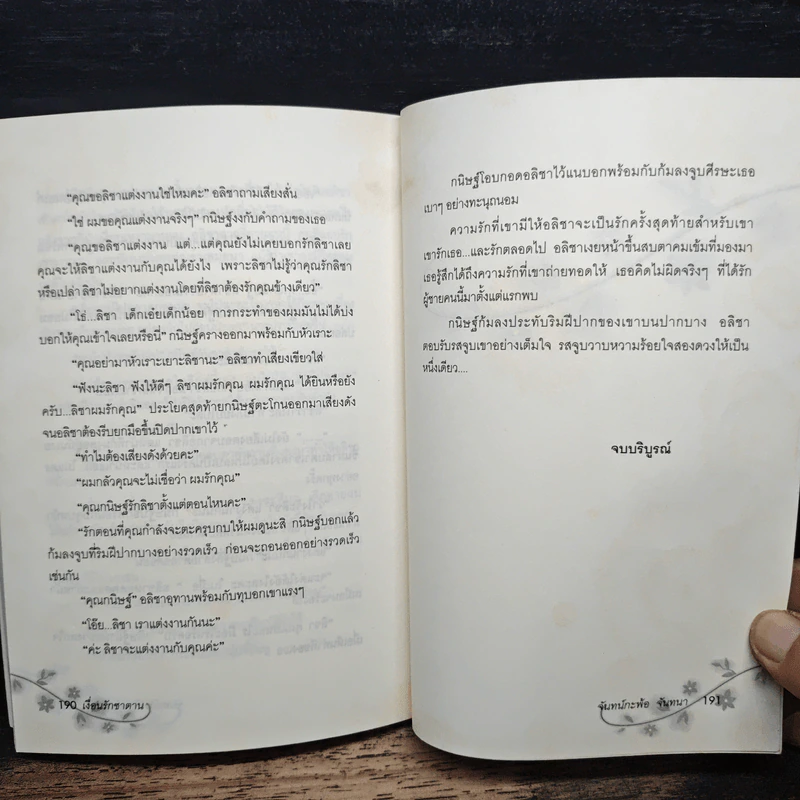 “คุณขอลิซาแต่งงานใช่ไหมคะ” อลิซาถามเสียงสั่น
“ใช่ ผมขอคุณแต่งงานจริงๆ” กนิษฐ์งงกับคำถามของเธอ
“คุณขอลิซาแต่งงาน แต่...แต่คุณยังไม่เคยบอกรักลิซาเลย
คุณจะให้ลิซาแต่งงานกับคุณได้ยังไง เพราะลิซาไม่รู้ว่าคุณรักลิซา
หรือเปล่า ลิซาไม่อยากแต่งงานโดยที่ลิซาต้องรักคุณข้างเดียว”
“โธ่...ลิซา เด็กเอ๋ยเด็กน้อย การกระทำของผมมันไม่ได้บ่ง
บอกให้คุณเข้าใจเลยหรือนี่” กนิษฐ์ครางออกมาพร้อมกับหัวเราะ
“คุณอย่ามาหัวเราะเยาะลิซานะ” อลิซาทำเสียงเขียวใส่
“ฟังนะลิซา ฟังให้ดีๆ ลิซาผมรักคุณ ผมรักคุณ ได้ยินหรือยัง
ครับ...ลิซาผมรักคุณ” ประโยคสุดท้ายกนิษฐ์ตะโกนออกมาเสียงดัง
จนอลิซาต้องรีบยกมือขึ้นปิดปากเขาไว้
“ทำไมต้องเสียงดังด้วยคะ”
“ผมกลัวคุณจะไม่เชื่อว่า ผมรักคุณ”
“คุณกนิษฐ์รักลิซาตั้งแต่ตอนไหนคะ”
“รักตอนที่คุณกำลังจะตะครุบกบให้ผมดูนะสิ กนิษฐ์บอกแล้ว
ก้มลงจูบที่ริมฝีปากบางอย่างรวดเร็ว ก่อนจะถอนออกอย่างรวดเร็ว
เช่นกัน
“คุณกนิษฐ์” อลิซาอุทานพร้อมกับทุบอกเขาแรงๆ
“โอ๊ย...ลิซา เราแต่งงานกันนะ”
“ค่ะ ลิซาจะแต่งงานกับคุณค่ะ”
190 เงื่อนรักซาตาน
กนิษฐ์โอบกอดอลิซาไว้แนบอกพร้อมกับก้มลงจูบศีรษะเธอ
เบาๆ อย่างทะนุถนอม
ความรักที่เขามีให้อลิซาจะเป็นรักครั้งสุดท้ายสำหรับเขา
เขารักเธอ...และรักตลอดไป อลิซาเงยหน้าขึ้นสบตาคมเข้มที่มองมา
เธอรู้สึกได้ถึงความรักที่เขาถ่ายทอดให้ เธอคิดไม่ผิดจริงๆ ที่ได้รัก
ผู้ชายคนนี้มาตั้งแต่แรกพบ
กนิษฐ์ก้มลงประทับริมฝีปากของเขาบนปากบาง อลิซา
ตอบรับรสจูบเขาอย่างเต็มใจ รสจูบวาบหวามร้อยใจสองดวงให้เป็น
หนึ่งเดียว....
จบบริบูรณ์
จันทน์กะพ้อ จันทนา 191